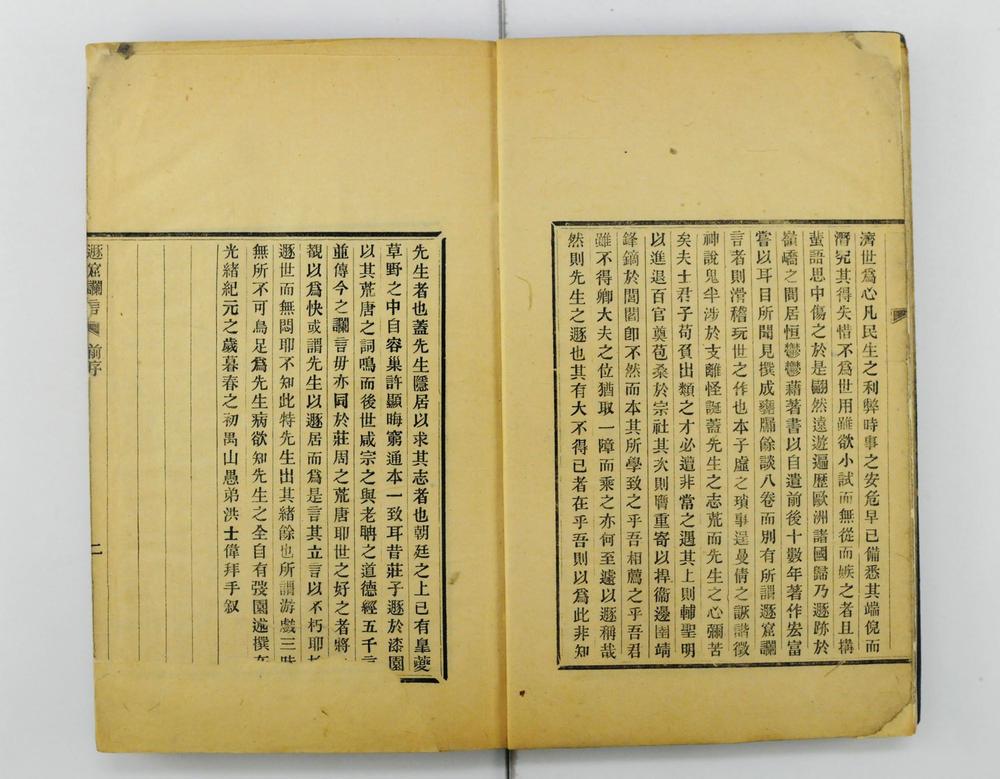 濟世爲心凡民生之利弊時事之安危早已備悉其端倪而
潛究其得失惜不爲世用雖欲小試而無從而嫉之者且搆
蜚語思中傷之於是翩然遠遊遍歷歐洲諸國歸乃遯跡於
嶺嶠之間居恒鬱鬱藉著書以自遣前後十數年著作宏富
嘗以耳目所聞見撰成甕牖餘談八卷而別有所謂遯窟讕
言者則滑稽玩世之作也本子虛之瑣事逞曼倩之詼諧徵
神說鬼半涉於支離怪誕蓋先生之志荒而先生之心彌苦
矣夫士君子苟負出類之才必遭非常之遇其上則輔聖明
以進退百官奠苞桑於宗社其次則膺重寄以捍衞邊圉靖
鋒鏑於閭閻卽不然而本其所學致之乎吾相薦之乎吾君
雖不得卿大夫之位猶取一障而乘之亦何至遽以遯稱哉
然則先生之遯也其有大不得已者在乎吾則以爲此非知
先生者也蓋先生隱居以求其志者也朝廷之上已有皇夔
草野之中自容巢許顯晦窮通本一致耳昔莊子遯於漆園
以其荒唐之詞鳴而後世咸宗之與老聃之道德經五千言
並傳今之讕言毋亦同於莊周之荒唐耶世之好之者將
觀以爲快或謂先生以遯居而爲是言其立言以不朽耶抑
遯世而無悶耶不知此特先生出其緒餘也所謂游戲三昧
無所不可烏足爲先生病欲知先生之全自有弢園述撰在
光緒紀元之歲暮春之初禺山愚弟洪士偉拜手叙
遯窟讕言 前序 二